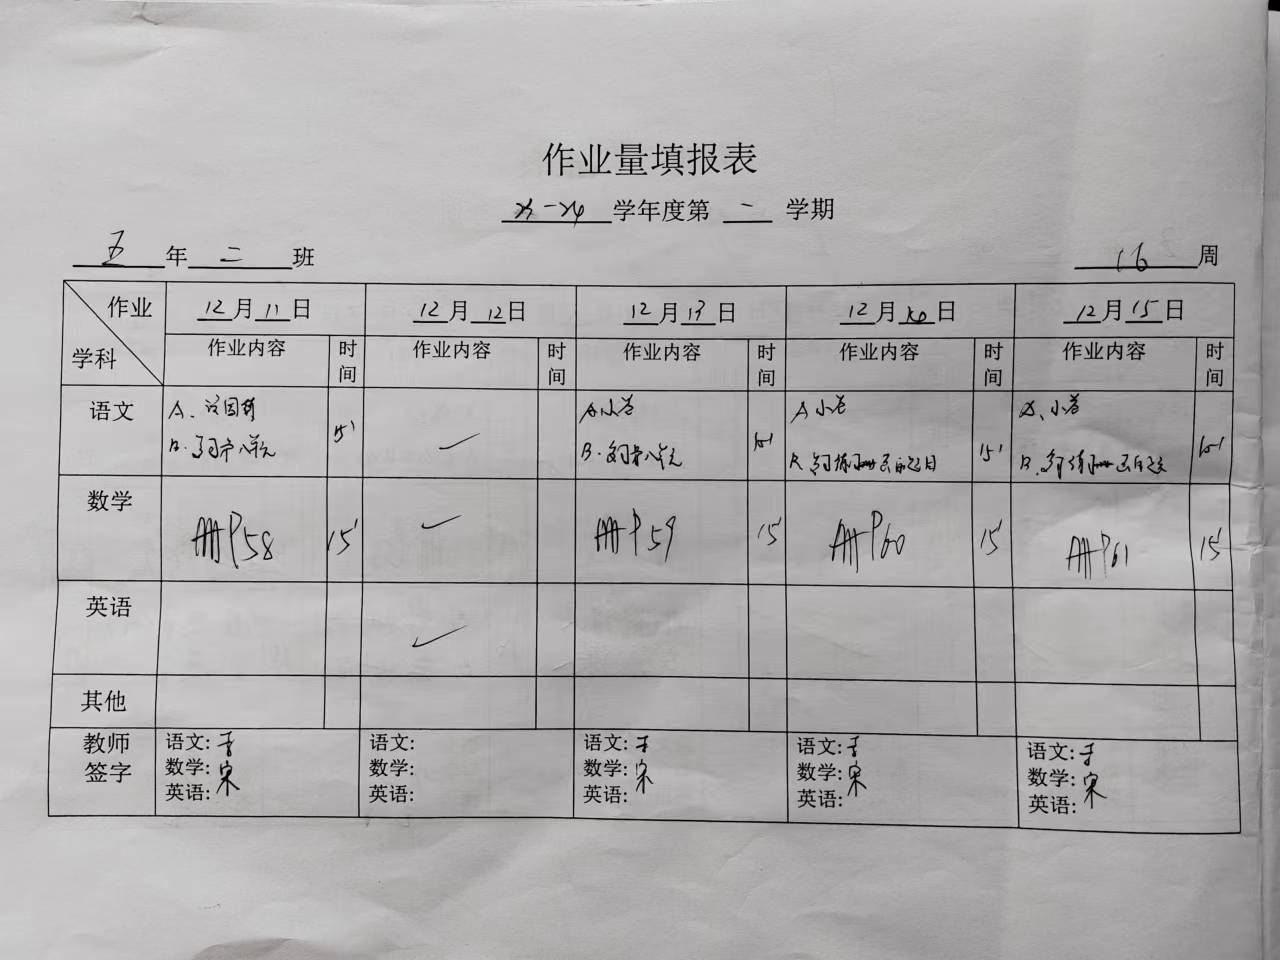 作业量填报表
学年度第 一 学期
五 年 二 班
16 周
作业
学科
12月11日
12月12日
12月13日
12月
日
12月15日
作业内容 时间
作业内容 时间
作业内容 时间
作业内容 时间
作业内容 时间
语文
A.
B.
第八单元
15'
A 小卷
B. 复习第八单元
15'
A 小卷
15'
小卷
B.
15'
数学
P58
15'
P59
15'
P60
15'
P61
15'
英语
其他
教师签字
语文:
数学: 宋
英语:
语文:
数学:
英语:
语文: 于
数学: 宋
英语:
语文: 于
数学: 宋
英语:
语文: 于
数学: 宋
英语: